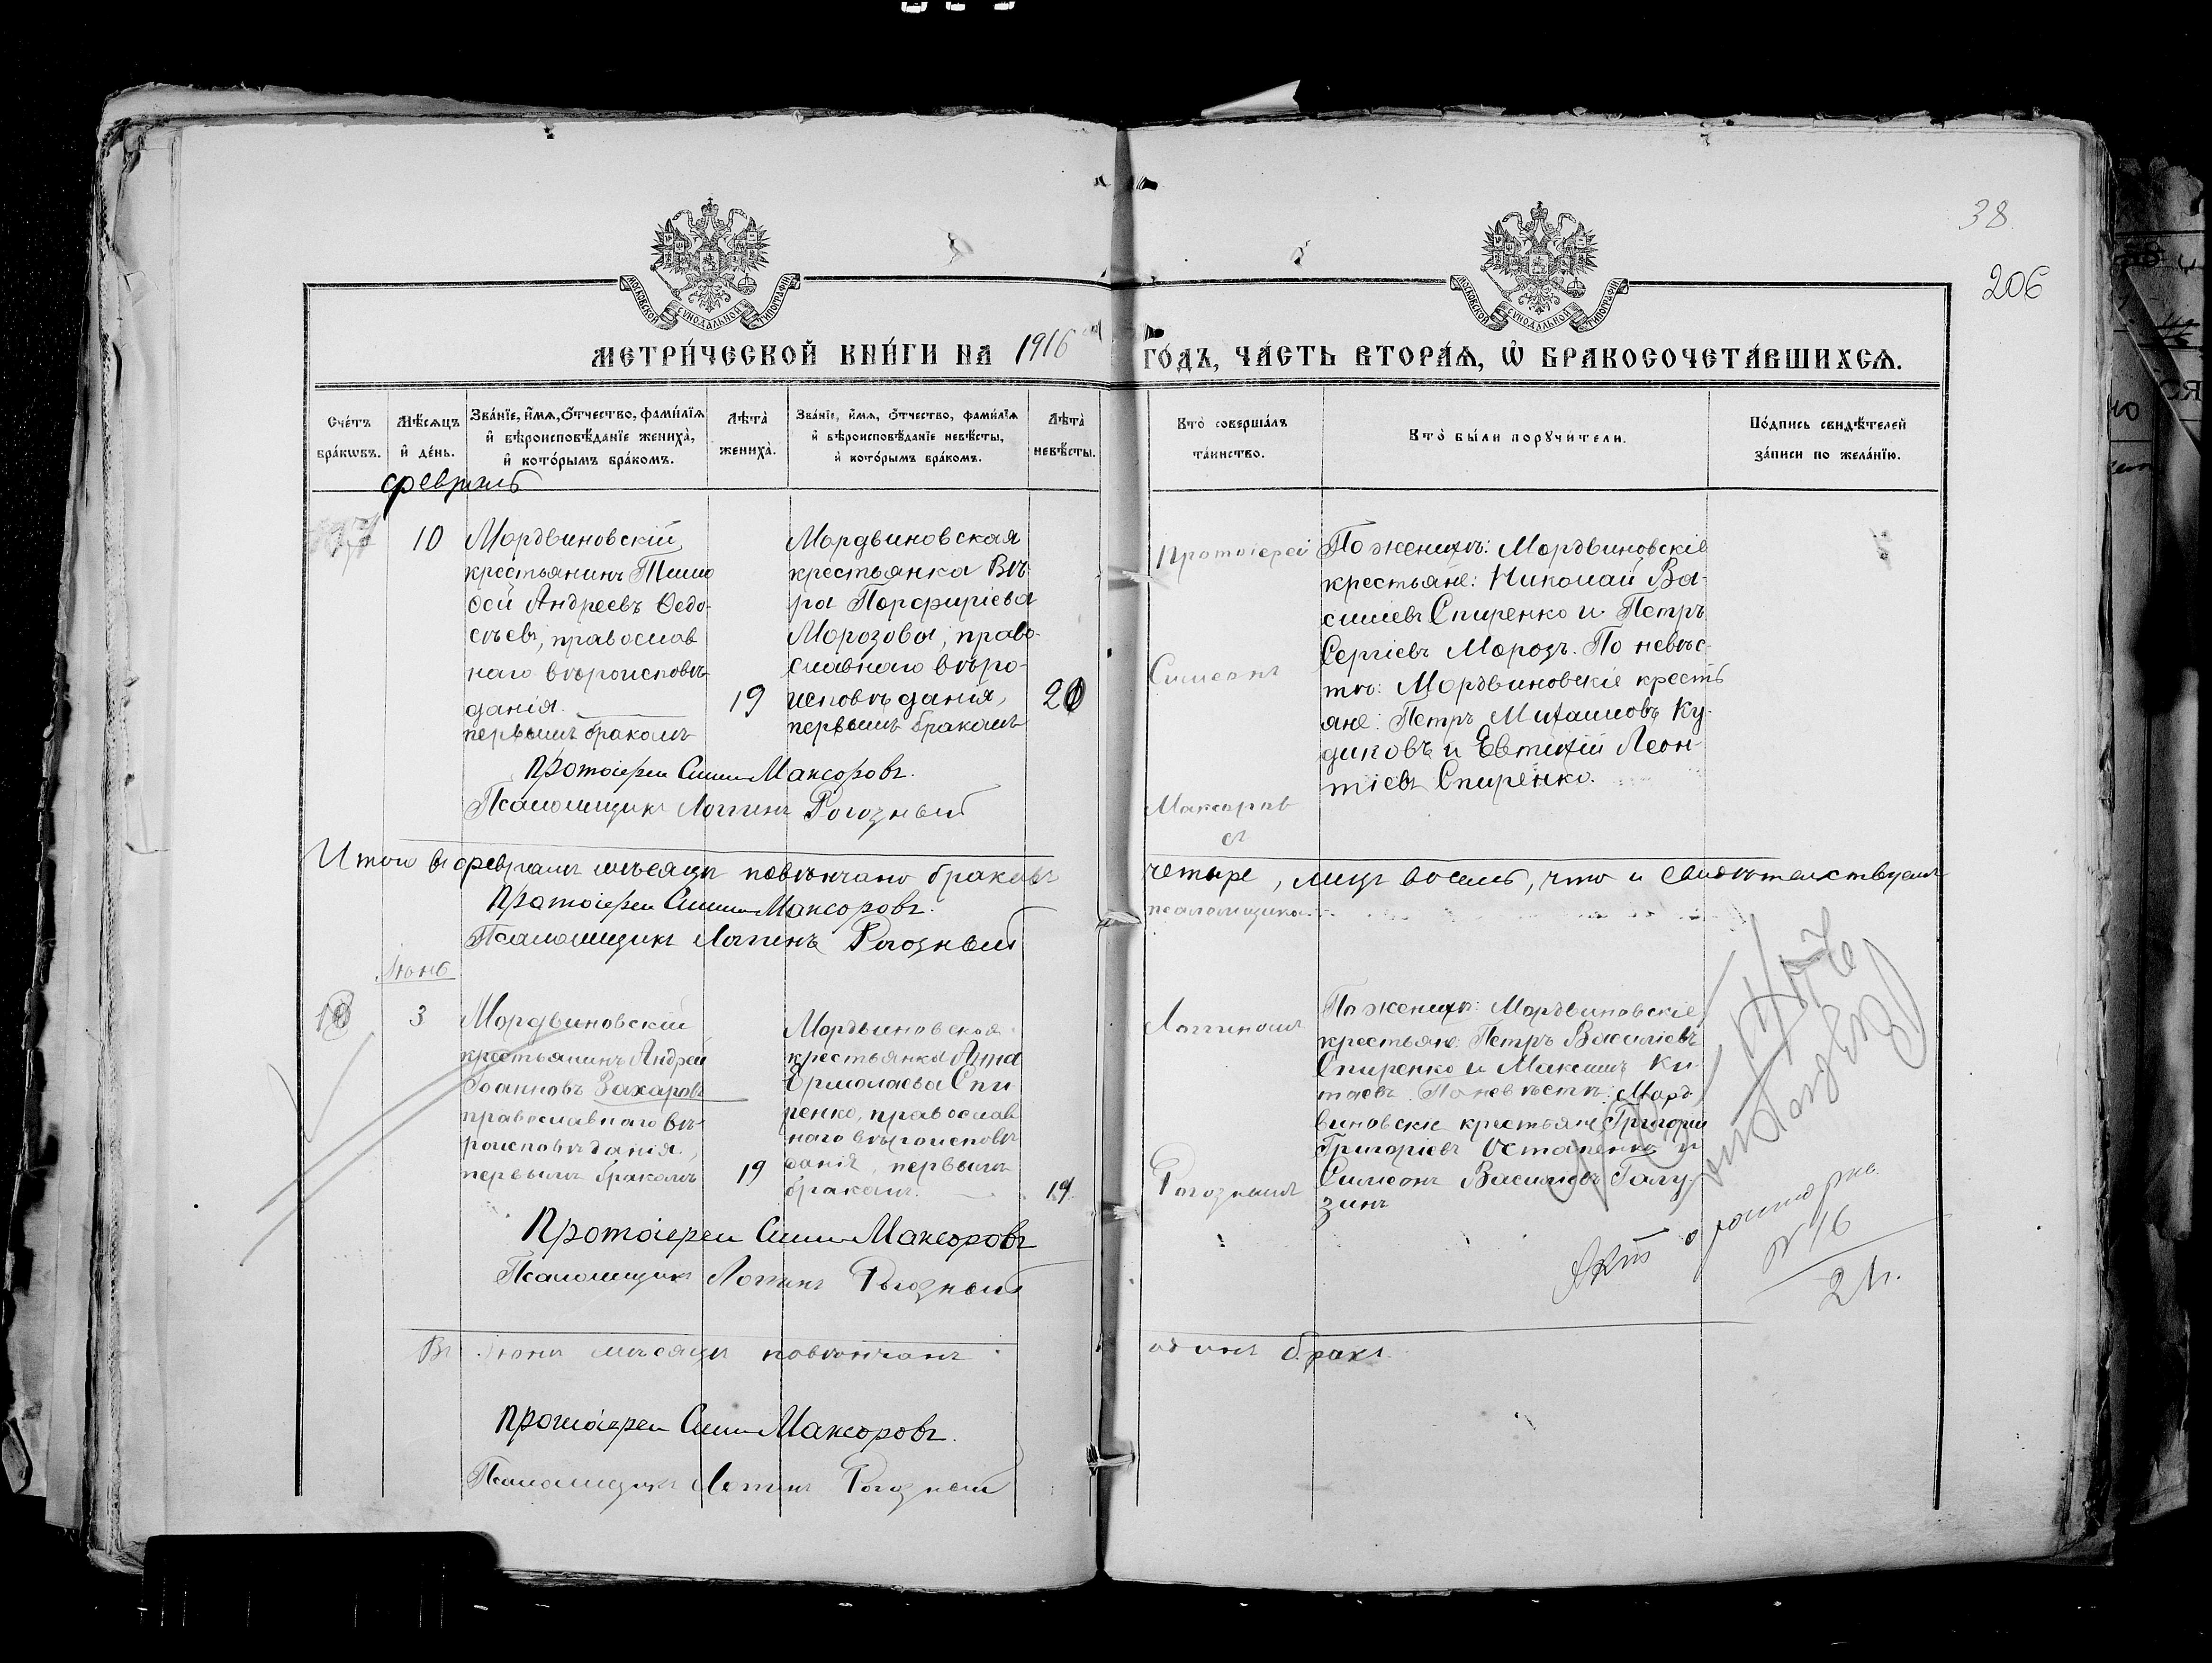 38
206
МОСКОВСКОЙ СУНОДАЛЬНОЙ ТИПОГРАФІИ
МОСКОВСКОЙ СУНОДАЛЬНОЙ ТИПОГРАФІИ
МЕТРИ́ЧЕСКОЙ КНИ́ГИ НА 1916 ГО́ДЪ, ЧА́СТЬ ВТОРА́Ѧ, Ѡ҆ БРАКОСОЧЕТА́ВШИХСѦ.
Сче́тъ бра́кѡвъ.
Мѣ́сѧцъ и҆ де́нь.
Зва́нїе, и҆́мѧ, ѻ҆́тчество, фами́лїѧ и҆ вѣроисповѣ́данїе жениха̀, и҆ кото́рымъ бра́комъ.
Лѣта̀ жениха̀.
Зва́нїе, и҆́мѧ, ѻ҆́тчество, фами́лїѧ и҆ вѣроисповѣ́данїе невѣ́сты, и҆ кото́рымъ бра́комъ.
Лѣта̀ невѣ́сты.
Кто̀ соверша́лъ та́инство.
Кто̀ бы́ли порꙋчи́тели.
По́дпись свидѣ́телей за́писи по жела́нїю.
февраль
10
Мордвиновскій
крестьянинъ Тимо
фей Андреевъ Ѳедо-
сѣевъ, православ
наго вѣроисповѣ-
данія.
первымъ бракомъ
19
Мордвиновская
крестьянка Вѣ-
ра Порфиріева
Морозова, право-
славнаго вѣро-
исповѣданія,
первымъ бракомъ
20
Протоіерей
Симеонъ
Максоровъ
съ
псаломщикомъ
Логгиномъ
Рогознымъ
По женихѣ: Мордвиновскіе
крестьяне: Николай Ва-
силіевъ Спиренко и Петръ
Сергіевъ Морозъ. По невѣс-
тѣ: Мордвиновскіе кресть
яне: Петръ Михаиловъ Ку-
диковъ и Евтихій Леон-
тіевъ Спиренко.
Протоіерей Симеонъ Максоровъ.
Псаломщикъ Логгинъ Рогозный
Итого въ февралѣ мѣсяцѣ повѣнчано браковъ четыре, лицъ восемь, что и свидѣтельствуемъ
Протоіерей Симеонъ Максоровъ.
Псаломщикъ Логгинъ Рогозный
Іюнь
3
Мордвиновскій
крестьянинъ Андрей
Іоанновъ Захаровъ
православнаго вѣ-
роисповѣданія,
первымъ бракомъ
19
Мордвиновская
крестьянка Анна
Ермолаева Спи
ренко, православ
наго вѣроисповѣ
данія, первымъ
бракомъ.
19
По женихѣ: Мордвиновскіе
крестьяне: Петръ Василіевъ
Спиренко и Максимъ Ки
таевъ. По невѣстѣ: Морд
виновскіе крестьяне Григорій
Григоріевъ Остапенко и
Симеонъ Василіевъ Галу-
зинъ
Протоіерей Симеонъ Максоровъ
Псаломщикъ Логгинъ Рогозный
Актъ о
№ 16
21 г.
Въ Іюнѣ мѣсяцѣ повѣнчанъ одинъ бракъ.
Протоіерей Симеонъ Максоровъ.
Псаломщикъ Логгинъ Рогозный